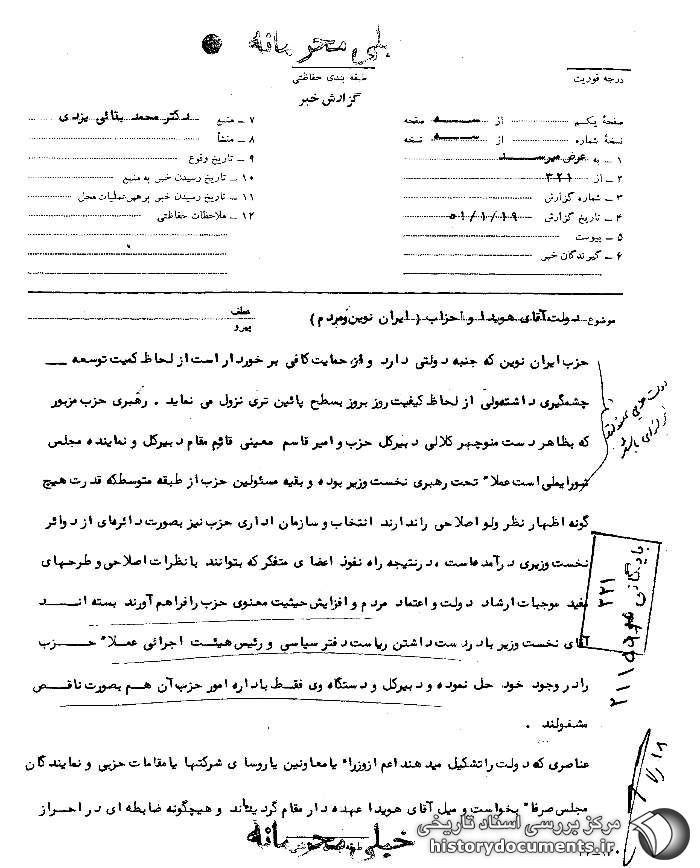 خیلی محرمانه
طبقه بندی حفاظتی
درجه فوریت
گزارش خبر
صفحهٔ یکم از ســـه صفحه
نسخهٔ شماره از ســـه نسخه
۱ ــ به عرض میرســـد
۲ ــ از ۳۲۱
۳ ــ شماره گزارش
۴ ــ تاریخ گزارش ۵۱/۱/۱۹
۵ ــ پیوست
۶ ــ گیرندگان خبر
۷ ــ منبع دکتر محمد بقائی یزدی
۸ ــ منشأ
۹ ــ تاریخ وقوع
۱۰ ــ تاریخ رسیدن خبر به منبع
۱۱ ــ تاریخ رسیدن خبر برهبر عملیات محل
۱۲ ــ ملاحظات حفاظتی
موضوع دولت آقای هویدا و احزاب (ایران نوین و مردم)
عطف
پیرو
حزب ایران نوین که جنبه دولتی دارد و از حمایت کافی برخوردار است از لحاظ کمیت توسعه
چشمگیری داشته ولی از لحاظ کیفیت روز بروز بسطح پائین تری نزول می نماید . رهبری حزب مزبور
که بظاهر دست منوچهر کلالی دبیرکل حزب و امیر قاسم معینی قائم مقام دبیرکل و نماینده مجلس
شورایملی است عملا" تحت رهبری نخست وزیر بوده و بقیه مسئولین حزب از طبقه متوسطکه قدرت هیچ
گونه اظهار نظر ولو اصلاحی را ندارند انتخاب و سازمان اداری حزب نیز بصورت دائرهای از دوائر
نخست وزیری درآمده است ، درنتیجه راه نفوذ اعضای متفکر که بتوانند با نظرات اصلاحی و طرحهای
مفید موجبات ارشاد دولت و اعتماد مردم و افزایش حیثیت معنوی حزب را فراهم آورند بسته انـــد
آقای نخست وزیر با در دست داشتن ریاست دفتر سیاسی و رئیس هیئت اجرائی عملا" حــزب
را در وجود خود حل نموده و دبیرکل و دستگاه وی فقط با داره امور حزب آن هم بصورت ناقــص
مشغولند .
عناصری که دولت را تشکیل میدهند اعم از وزراء یا معاونین یا روسای شرکتها یا مقامات حزبی و نمایندگان
مجلس صرفا" بخواست و میل آقای هویدا عهده دار مقام گردیده‌اند و هیچگونه ضابطه ای در احراز
بایگانی شود
۳۲۱
۲۱۱۵۱۵
خیلی محرمانه
مرکز بررسی اسناد تاریخی
historydocuments.ir